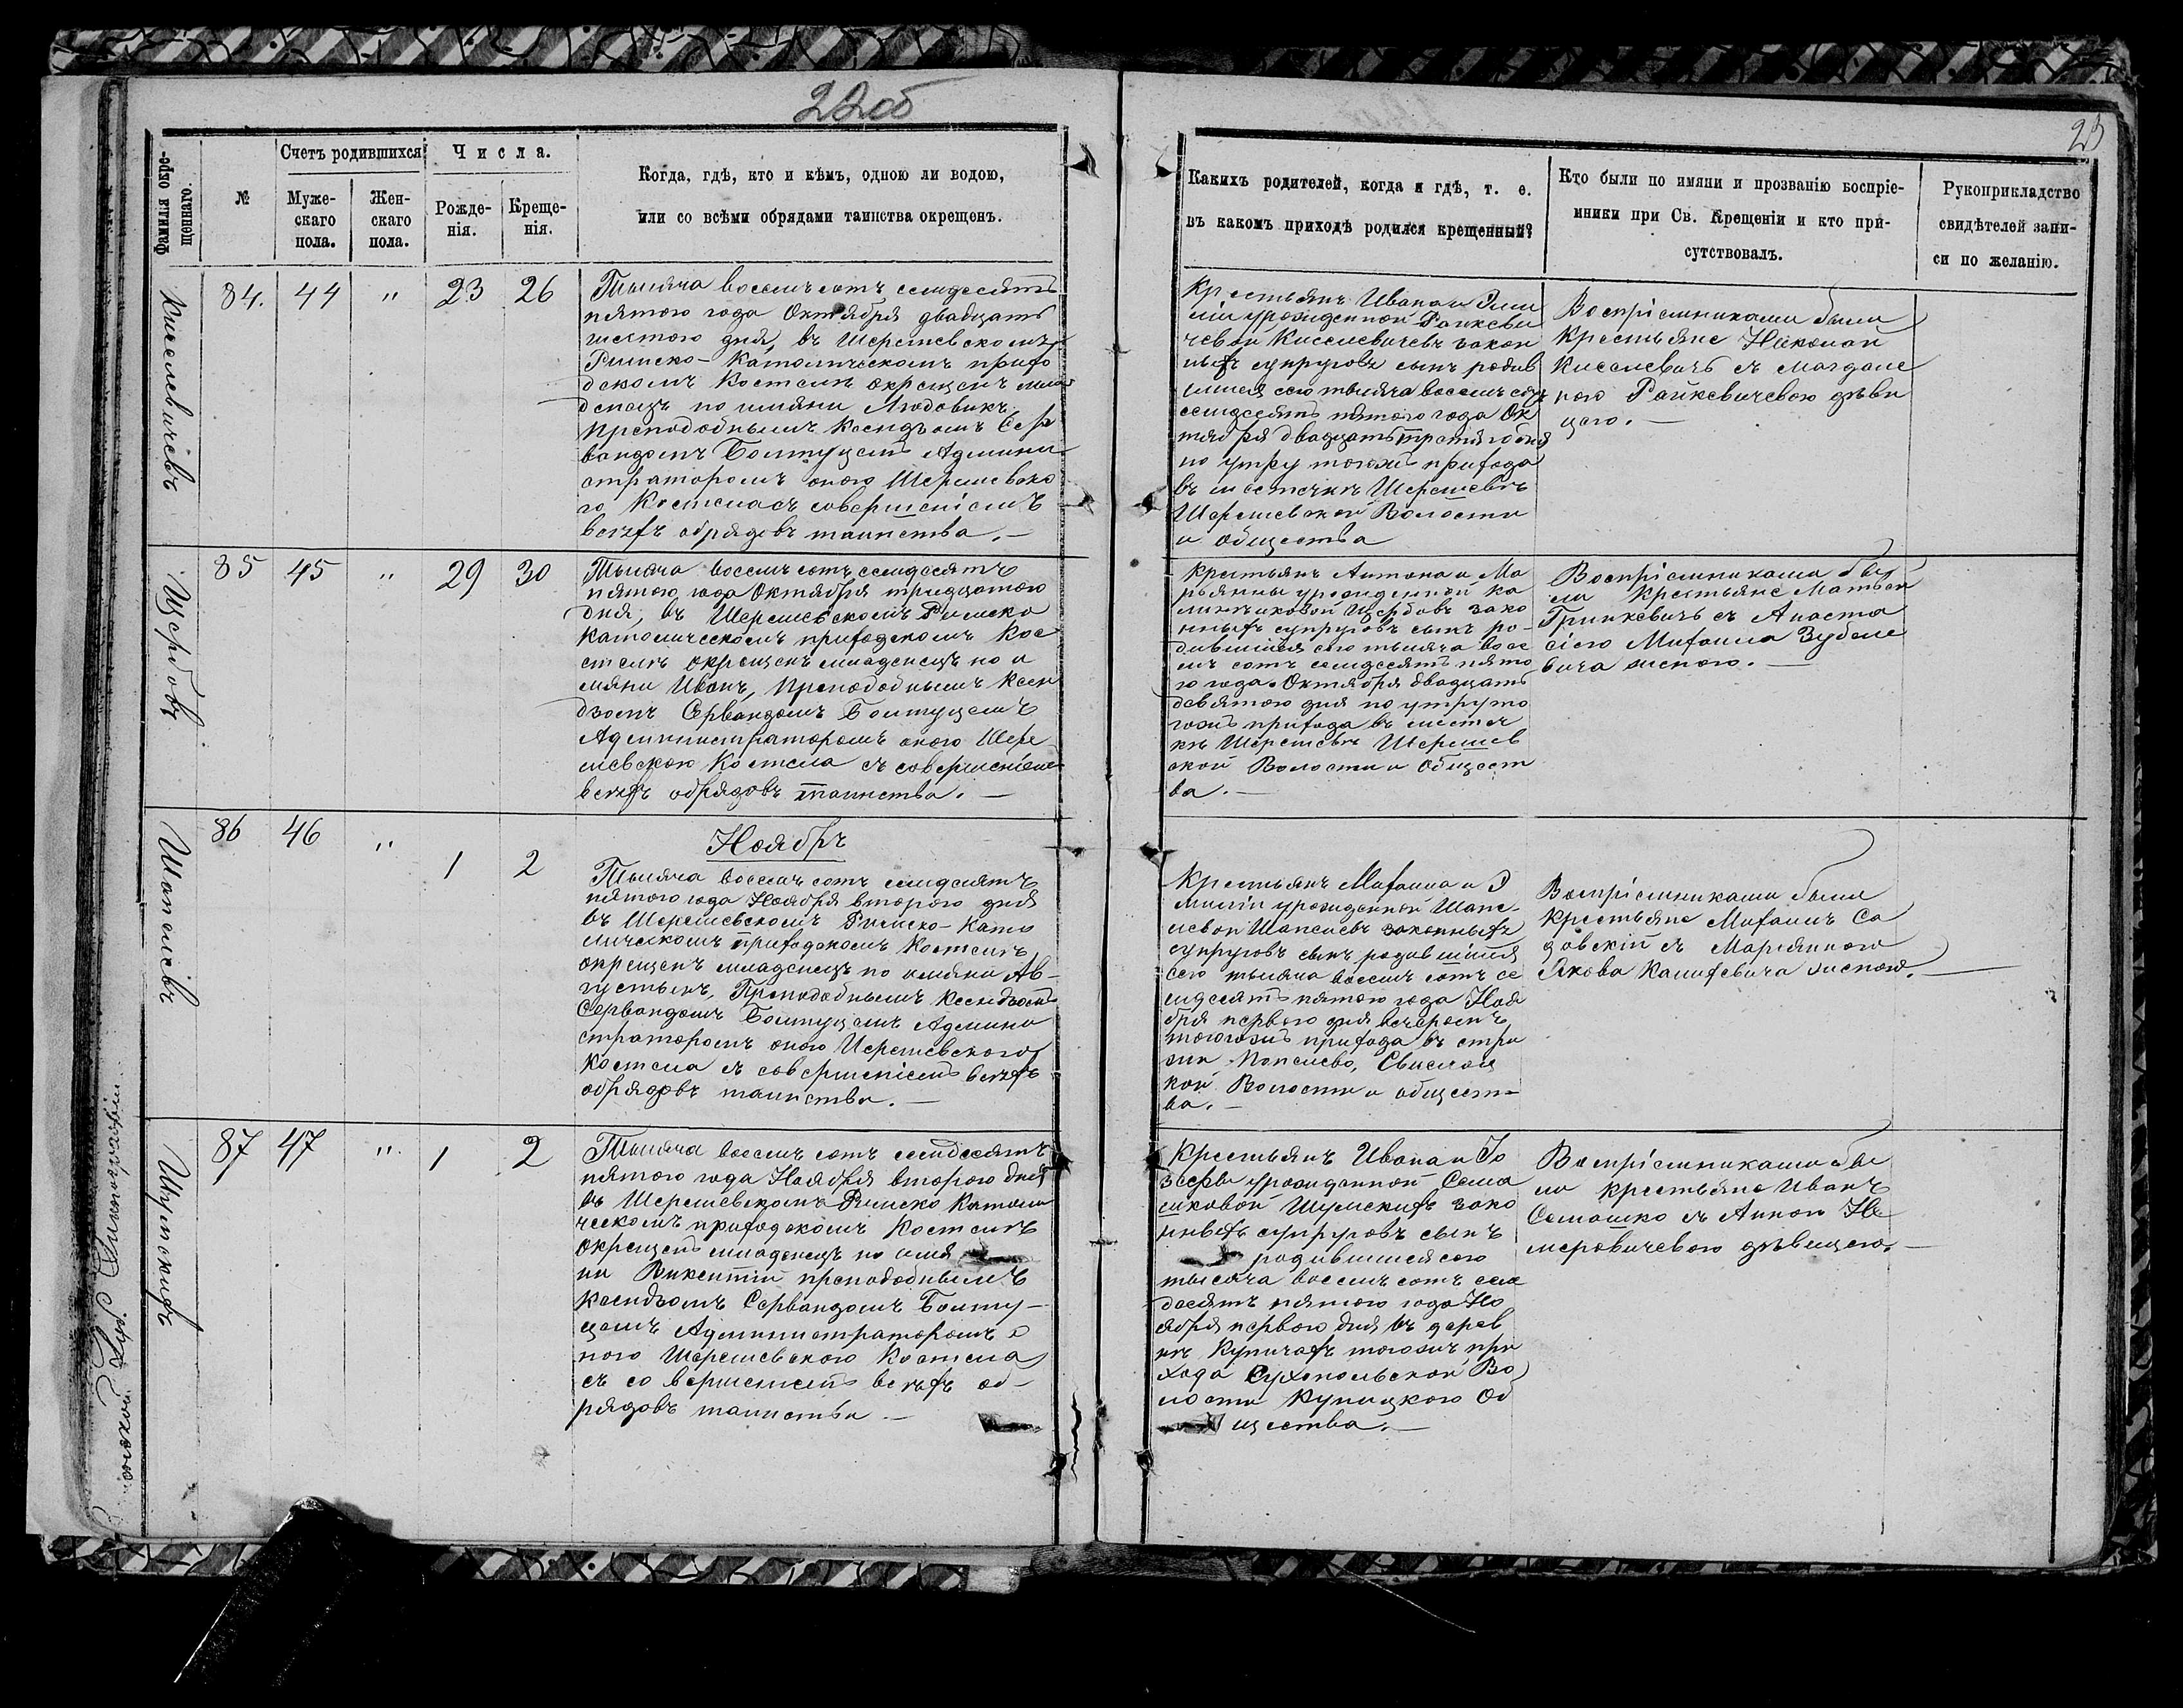 22об
23
Фамилія окре-
щеннаго.
№
Счетъ родившихся
Муже-
скаго
пола.
Жен-
скаго
пола.
Числа.
Рожде-
нія.
Креще-
нія.
Когда, гдѣ, кто и кѣмъ, одною ли водою,
или со всѣми обрядами таинства окрещенъ.
Какихъ родителей, когда и гдѣ, т. е.
въ какомъ приходѣ родился крещенный?
Кто были по имяни и прозванію воспріе-
мники при Св. Крещеніи и кто при-
сутствовалъ.
Рукоприкладство
свидѣтелей запи-
си по желанію.
Киселевичевъ
84. 44 " 23 26
Тысяча восемъ сотъ семидесятъ
пятого года Октября двадцать
шестого дня, въ Шерешевскомъ
Римско-Католическомъ прихо
дскомъ Костелѣ окрещенъ мла
денецъ по имяни Людовикъ
Преподобнымъ Ксендзомъ Сер
вандомъ Болтуцемъ Админи
стратором оного Шерешевско
го Костела съ совершеніемъ
всѣхъ обрядовъ таинства. —
Крестьянъ Ивана и Эми
ліи урожденной Райкеви
чевой Киселевичевъ закон
ныхъ супруговъ сынъ родив
шійся сего тысяча восемъ сотъ
семидесятъ пятого года Ок
тября двадцать третяго дня
по утру тогожъ прихода
въ местечкѣ Шерешевѣ
Шерешевской Волости
и общества
Воспріемниками были
Крестьяне Николай
Киселевичъ съ Магдале
ною Райкевичевою дѣви
цею. —
Щербовъ
85 45 " 29 30
Тысяча восемъ сотъ семидесятъ
пятого года Октября тридцатого
дня, въ Шерешевскомъ Римско
Католическомъ приходскомъ Кос
телѣ окрещенъ младенецъ по и
мяни Иванъ, Преподобнымъ Ксен
дзомъ Сервандомъ Болтуцемъ
Администраторомъ оного Шере
шевского Костела съ совершеніемъ
всѣхъ обрядовъ таинства. —
Крестьянъ Антона и Ма
рьянны урожденной Ка
линчиковой Щербовъ зако
нныхъ супруговъ сынъ ро-
дившійся сего тысяча восе
мъ сотъ семидесятъ пято
го года Октября двадцать
девятого дня по утру то
гожъ прихода въ местеч
кѣ Шерешевѣ Шерешев
ской Волости и Общест
ва. —
Воспріемниками бы
ли Крестьяне Матвей
Гринкевичъ съ Анаста
сіею Михаила Зубеле
вича женою. —
Шапелевъ
86 46 " 1 2
Ноябрь
Тысяча восемъ сотъ семидсятъ
пятого года Ноября второго дня
въ Шерешевскомъ Римско-Като
лическомъ приходскомъ Костелѣ
окрещенъ младенецъ по имяни Ав-
густынъ, Преподобнымъ Ксендзомъ
Сервандомъ Болтуцемъ Админи
страторомъ оного Шерешевского
Костела съ совершеніемъ всѣхъ
обрядовъ таинства. —
Крестьянъ Михаила и Э
миліи урожденной Шапе-
левой Шапелевъ законныхъ
супруговъ сынъ родившійся
сего тысяча восемъ сотъ се
мидсятъ пятого года Ноя
бря первого дня вечеромъ
тогожъ прихода въ стра
жи Попелево,
кой Волости и общест-
ва. —
Воспріемниками были
Крестьяне Михаилъ Са
довскій съ Маріянною
Якова Калихевича женою. —
Шумскихъ
87 47 " 1 2
Тысяча восемъ сотъ семидесятъ
пятого года Ноября второго дня
въ Шерешевскомъ Римско Католи
ческомъ приходскомъ Костелѣ
окрещенъ младенецъ по имя
ни Викентій преподобнымъ
Ксендзомъ Сервандомъ Болту-
цемъ Администраторомъ о
ного Шерешевского Костела
съ совершеніемъ всѣхъ об-
рядовъ таинства —
Крестьянъ Ивана и Іо
зефы урожденной Сема
шковой Шумскихъ зако
нныхъ супруговъ сынъ
родившійся сего
тысяча восемъ сотъ семи
десятъ пятого года Но
ября первого дня въ дерев
нѣ Купичахъ тогожъ при
хода Сухопольской Во
лости Купицкого Об
щества. —
Воспріемниками бы
ли крестьяне Иванъ
Семашко съ Анною Не
меровичевою дѣвицею. —